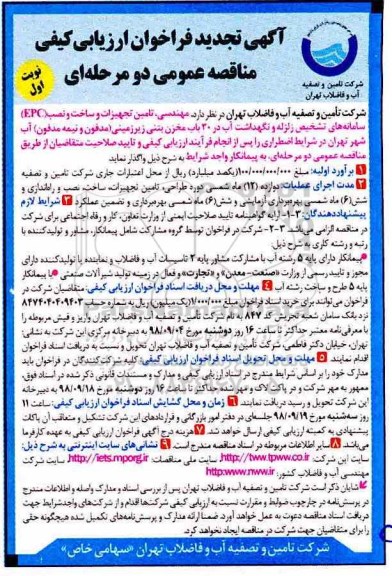 آگهی تجدید فراخوان ارزیابی کیفی
مناقصه عمومی دو مرحله‌ای
نوبت اول
شرکت تأمین و تصفیه
آب و فاضلاب تهران
شرکت تأمین و تصفیه آب و فاضلاب تهران در نظر دارد، مهندسی، تامین تجهیزات و ساخت و نصب (EPC)
سامانه‌های تشخیص زلزله و نگهداشت آب در ۳۰ باب مخزن بتنی زیرزمینی (مدفون و نیمه مدفون) آب
شهر تهران در شرایط اضطراری را پس از انجام فرآیند ارزیابی کیفی و تایید صلاحیت متقاضیان از طریق
مناقصه عمومی دو مرحله‌ای، به پیمانکار واجد شرایط به شرح ذیل واگذار نماید
۱ برآورد اولیه: مبلغ ۱۰۰/۰۰۰/۰۰۰/۰۰۰ (یکصد میلیارد) ریال از محل اعتبارات جاری شرکت تامین و تصفیه
۲ مدت اجرای عملیات: دوازده (۱۲) ماه شمسی دوره طراحی، تامین تجهیزات، ساخت، نصب و راه‌اندازی و
شش (۶) ماه شمسی بهره‌برداری آزمایشی و شش (۶) ماه شمسی بهره‌برداری و تضمین عملکرد ۳ شرایط لازم
پیشنهاددهندگان: ۱-۳- ارایه گواهینامه تایید صلاحیت ایمنی از وزارت تعاون، کار و رفاه اجتماعی برای شرکت
در مناقصه الزامی می‌باشد. ۲-۳- شرکت در فراخوان توسط گروه مشارکت شامل پیمانکار، مشاور و تولیدکننده با
رتبه و رشته کاری به شرح ذیل:
پیمانکار دارای پایه ۵ رشته آب با مشارکت مشاور پایه ۲ تاسیسات آب و فاضلاب و نماینده یا تولیدکننده دارای
مجوز و تایید رسمی از وزارت «صنعت، معدن» و «تجارت» و فعال در زمینه تولید شیرآلات صنعتی یا پیمانکار
پایه ۵ طرح و ساخت رشته آب ۴ مهلت و محل دریافت اسناد فراخوان ارزیابی کیفی: متقاضیان شرکت در
فراخوان می‌توانند برای خرید اسناد فراخوان مبلغ ۱/۰۰۰/۰۰۰ (یک میلیون) ریال به شماره حساب
نزد بانک سامان شعبه کد ۸۴۷ به نام شرکت تامین و تصفیه آب و فاضلاب تهران واریز و فیش مربوطه را
با معرفی نامه معتبر حداکثر تا ساعت ۱۶ روز دوشنبه مورخ ۹۸/۰۹/۰۴ به دبیرخانه مرکزی این شرکت به نشانی:
تهران، خیابان دکتر فاطمی، شرکت تامین و تصفیه آب و فاضلاب تهران تحویل و نسبت به دریافت اسناد فراخوان
اقدام نمایند. ۵ مهلت و محل تحویل اسناد فراخوان ارزیابی کیفی: کلیه شرکت‌کنندگان در فراخوان باید
مدارک خود را بر اساس شرایط مندرج در اسناد ارزیابی کیفی و مدارک و مستندات قانونی ذکر شده در اسناد فوق،
ممهور به مهر شرکت و در پاکت لاک و مهر شده حداکثر تا ساعت ۱۶ روز دوشنبه مورخ ۹۸/۰۹/۱۸ به دبیرخانه
این شرکت تحویل و رسید دریافت نمایند. ۶ زمان و محل گشایش اسناد فراخوان ارزیابی کیفی: ساعت ۱۱
روز سه‌شنبه مورخ ۹۸/۰۹/۱۹ جلسه‌ای در دفتر امور بازرگانی و قراردادهای این شرکت تشکیل و متعاقب آن پاکات
پیشنهادی به کمیته ارزیابی کیفی ارسال خواهد شد. ۷ هزینه درج آگهی فراخوان ارزیابی کیفی به عهده کارفرما
می‌باشد. ۸ سایر اطلاعات مربوطه در اسناد مناقصه مندرج است. ۹ نشانی‌های سایت اینترنتی به شرح ذیل:
سایت این شرکت: http://tww.tpww.co.ir، سایت ملی مناقصات: http://iets.mporg.ir، سایت شرکت
مهندسی آب و فاضلاب کشور: http:www.nww.ir
شایان ذکر است شرکت تامین و تصفیه آب و فاضلاب تهران پس از بررسی اسناد و مدارک واصله و اطلاعات مندرج
در پرسش‌نامه در چارچوب ضوابط و مقررات نسبت به ارزیابی کیفی شرکت‌ها اقدام و از شرکت‌های واجد شرایط جهت
دریافت اسناد مناقصه دعوت به عمل خواهد آورد. ضمناً ارائه مدارک و پرسش‌نامه‌های تکمیل شده هیچگونه حقی
را برای متقاضیان جهت شرکت در مناقصه ایجاد نخواهد کرد.
شرکت تامین و تصفیه آب و فاضلاب تهران «سهامی خاص»